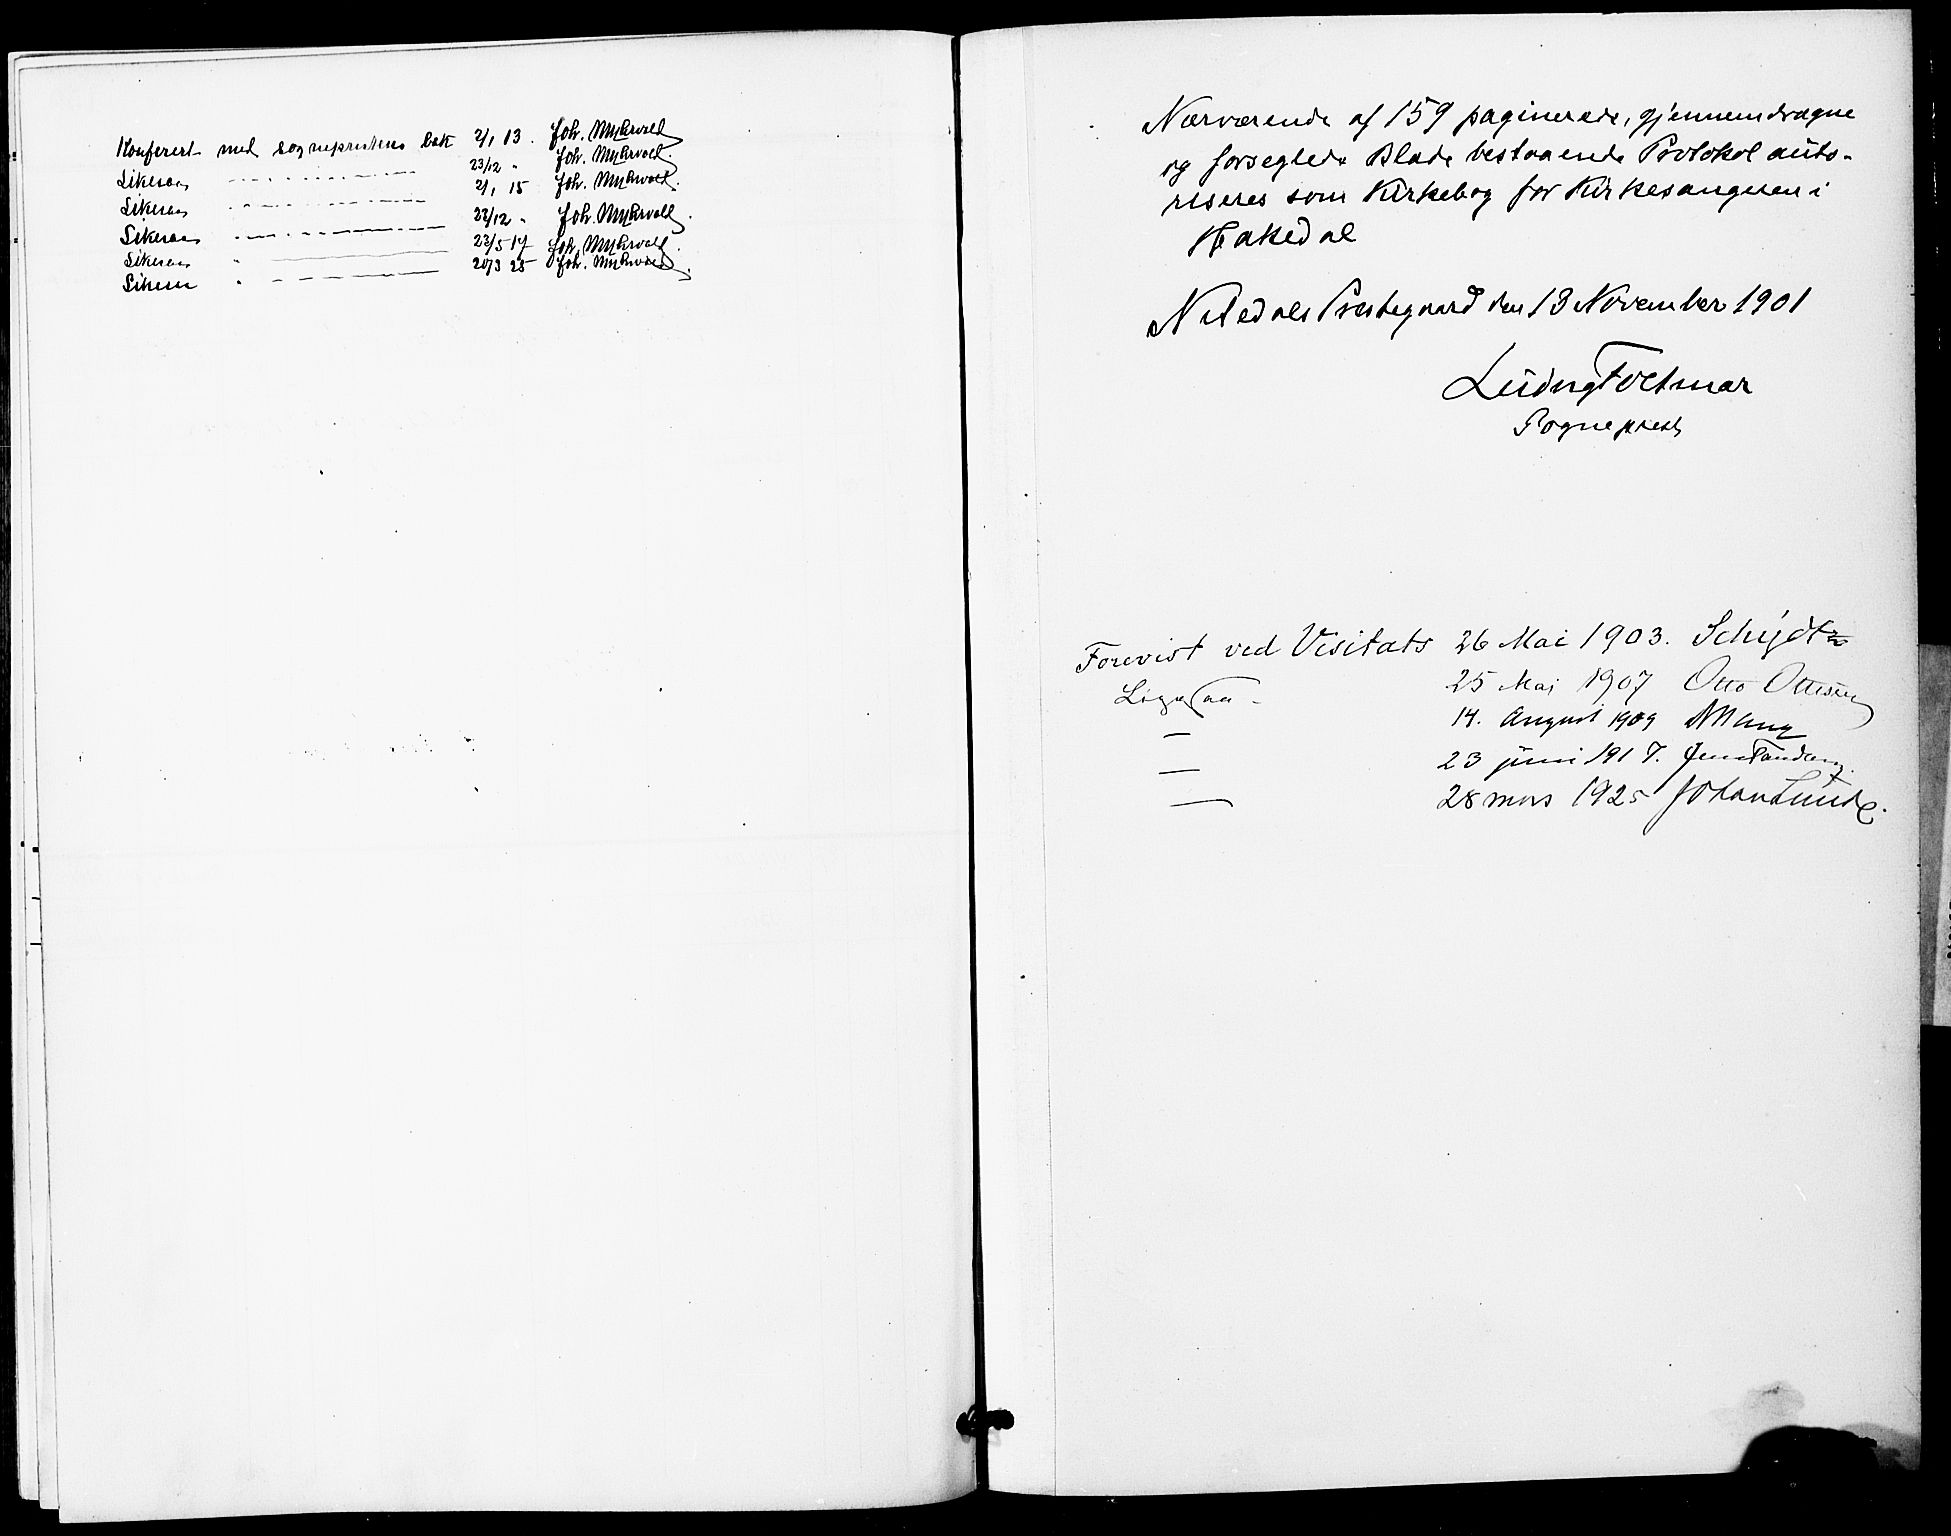 Konferert med sogneprestens bok 2/1 13. Joh. Myhrvold
Likesaa 23/12 " Joh. Myhrvold.
Likesaa 2/1 15 Joh. Myhrvold.
Likesaa 22/12 " Joh. Myhrvold.
Likesaa " 23/5 17 Joh. Myhrvold.
Likesaa " 20/3 25 Joh. Myhrvold.
Nærværende af 159 paginerede, gjennemdragne
og forseglede Blade bestaaende Protokol auto-
riseres som Kirkebog for Kirkesangeren i
Hakedal
Nitedals Prestegaard den 13 November 1901
Ludvig Foltmar
Sogneprest
Forevist ved Visitats 26 Mai 1903. Schjødtz
Ligesaa - 25 Mai 1907 Otto Ottesen
— 14. August 1909
— 23 juni 1917. Jens Tandberg.
— 28 mars 1925 Johan Lunde.